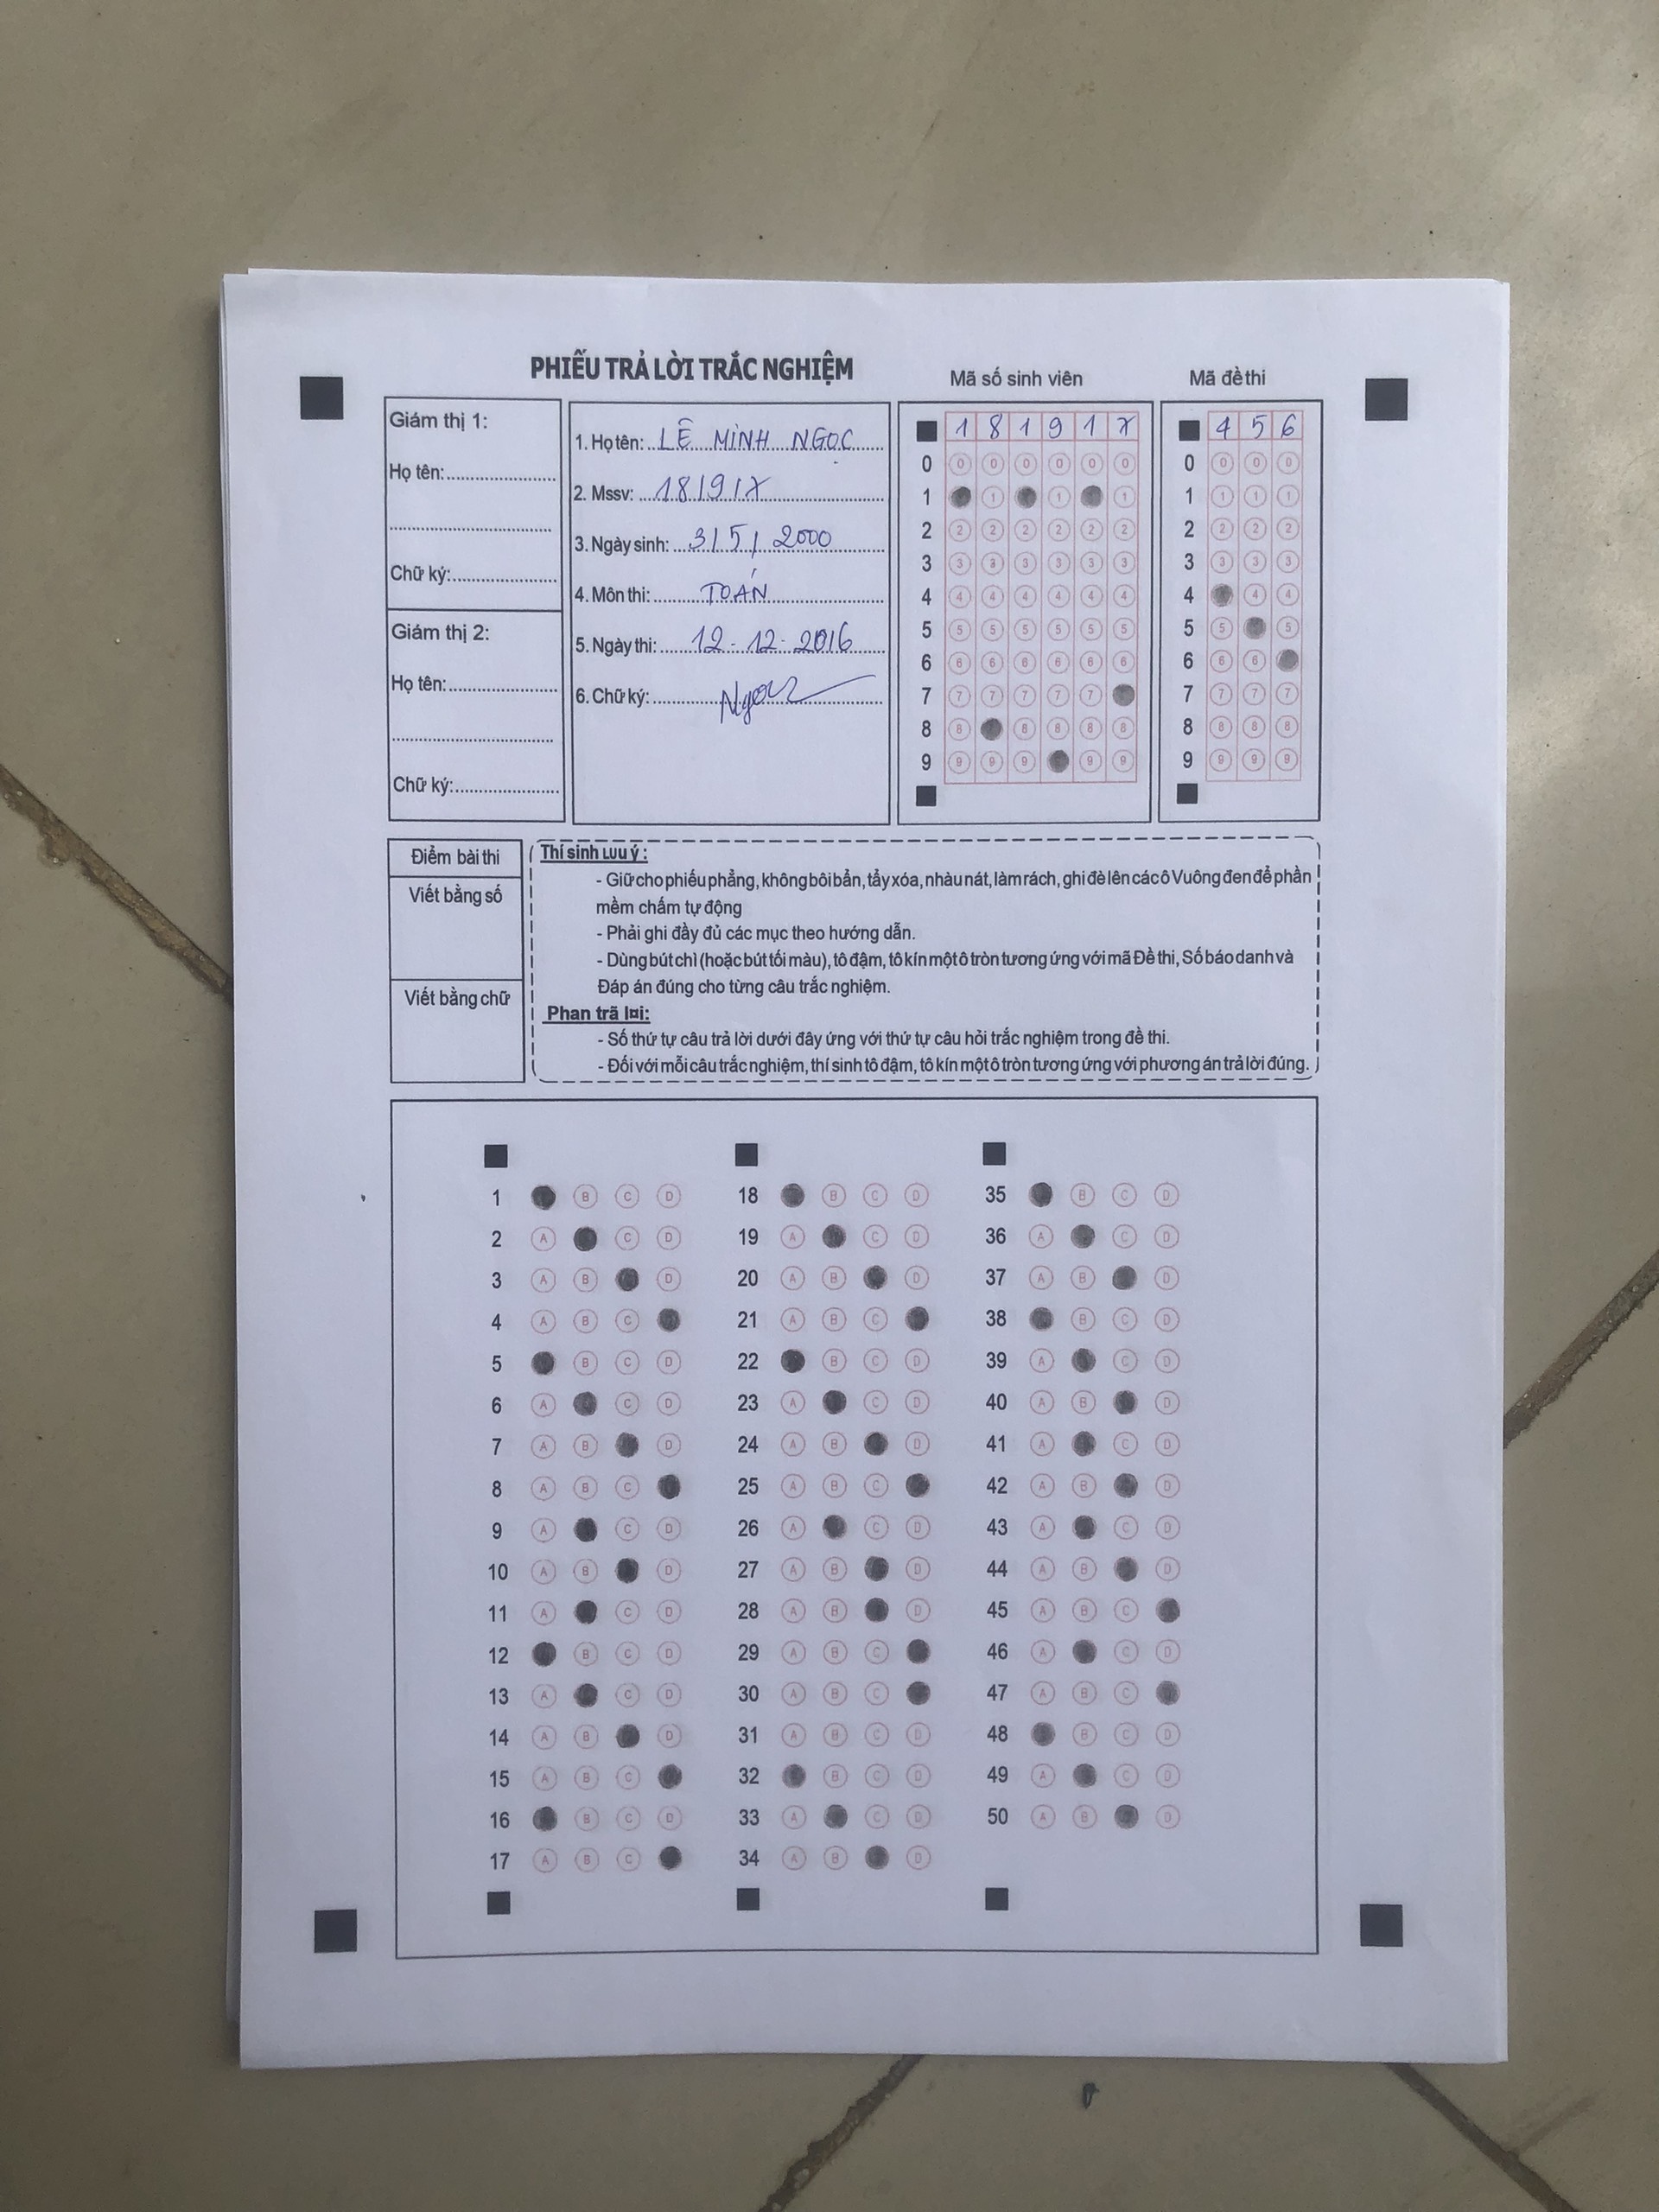 PHIẾU TRẢ LỜI TRẮC NGHIỆM
Mã số sinh viên
Mã đề thi
Giám thị 1:
Họ tên:
Chữ ký:
Giám thị 2:
Họ tên:
Chữ ký:
1. Họ tên: LÊ MINH NGỌC
2. Mssv: 181917
3. Ngày sinh: 3/5/2000
4. Môn thi: TOÁN
5. Ngày thi: 12-12-2016
6. Chữ ký: Ngọc
1 8 1 9 1 7
0 0 0 0 0 0 0
1 1 1 1
2 2 2 2 2 2 2
3 3 3 3 3 3 3
4 4 4 4 4 4 4
5 5 5 5 5 5 5
6 6 6 6 6 6 6
7 7 7 7 7 7
8 8 8 8 8 8
9 9 9 9 9 9
4 5 6
0 0 0 0
1 1 1 1
2 2 2 2
3 3 3 3
4 4 4
5 5 5
6 6 6
7 7 7 7
8 8 8 8
9 9 9 9
Điểm bài thi
Viết bằng số
Viết bằng chữ
Thí sinh LƯU ý :
- Giữ cho phiếu phẳng, không bôi bẩn, tẩy xóa, nhàu nát, làm rách, ghi đè lên các ô Vuông đen để phần
mềm chấm tự động
- Phải ghi đầy đủ các mục theo hướng dẫn.
- Dùng bút chì (hoặc bút tối màu), tô đậm, tô kín một ô tròn tương ứng với mã Đề thi, Số báo danh và
Đáp án đúng cho từng câu trắc nghiệm.
Phan trã l¤i:
- Số thứ tự câu trả lời dưới đây ứng với thứ tự câu hỏi trắc nghiệm trong đề thi.
- Đối với mỗi câu trắc nghiệm, thí sinh tô đậm, tô kín một ô tròn tương ứng với phương án trả lời đúng.
1 B C D
2 A C D
3 A B D
4 A B C
5 B C D
6 A C D
7 A B D
8 A B C
9 A C D
10 A B D
11 A C D
12 B C D
13 A C D
14 A B D
15 A B C
16 B C D
17 A B C
18 B C D
19 A C D
20 A B D
21 A B C
22 B C D
23 A C D
24 A B D
25 A B C
26 A C D
27 A B D
28 A B D
29 A B C
30 A B C
31 A B C D
32 B C D
33 A C D
34 A B D
35 B C D
36 A C D
37 A B D
38 B C D
39 A C D
40 A B D
41 A C D
42 A B D
43 A C D
44 A B D
45 A B C
46 A C D
47 A B C
48 B C D
49 A C D
50 A B D